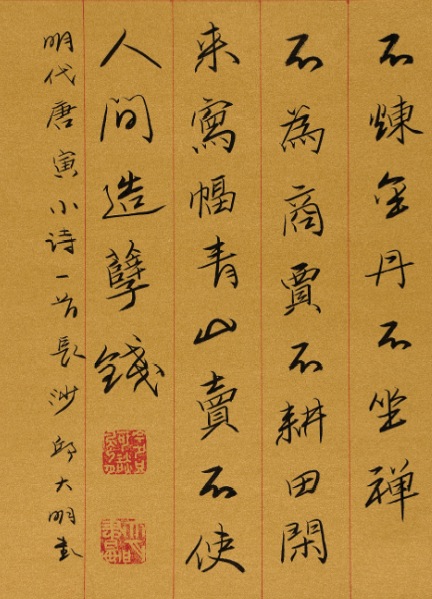 不煉金丹不坐禪
不為商賈不耕田閑
来寫幅青山賣不使
人間造孽錢
明代唐寅小诗一首長沙邱大明书